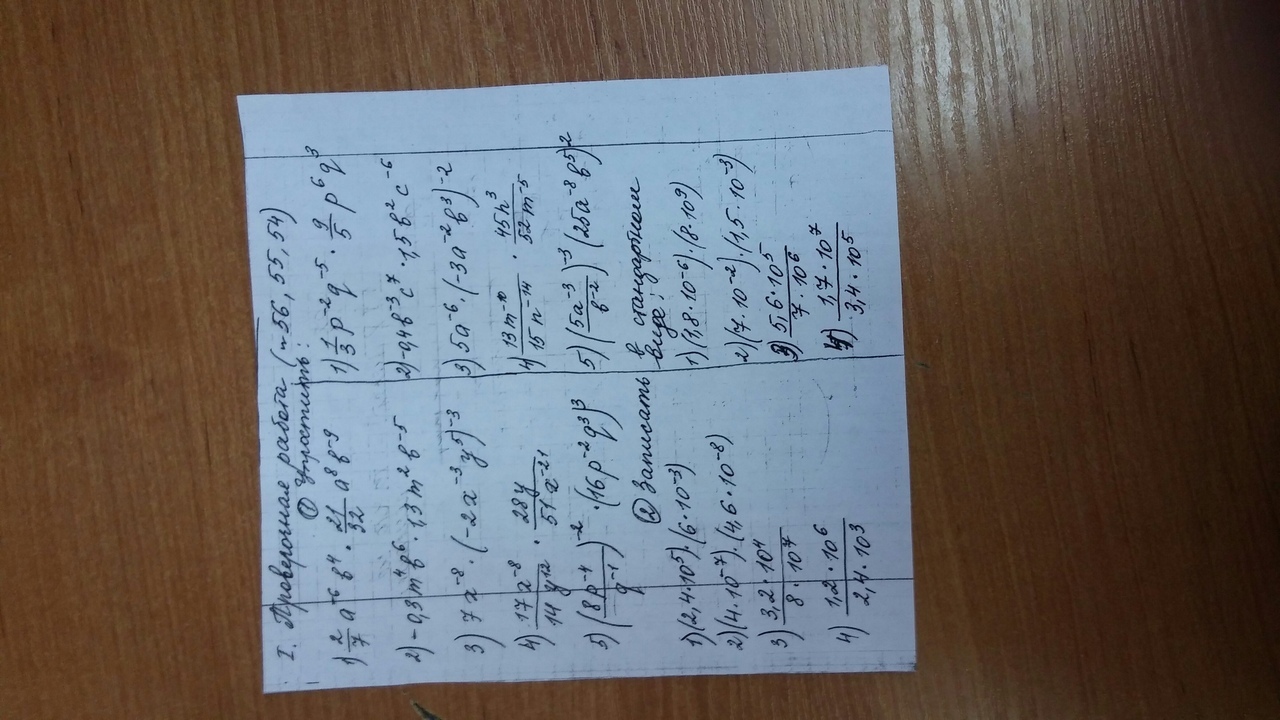 I. Проверочная работа (~56, 55, 54)
① Упростить:
1) 2/7 a⁻⁶ b⁴ · 21/32 a⁸ b⁻⁹
2) -0,3 m⁻⁴ b⁶ · 1,3 m² b⁻⁵
3) 7x⁻⁸ · (-2x⁻³ y⁵)⁻³
4) 17x⁻⁸/14y⁻¹² · 28y/51x⁻²¹
5) (8p⁻⁴/q⁻¹)⁻² · (16p⁻² q³)³
1) 1/3 p⁻² q⁻⁵ · 9/5 p⁶ q³
2) -0,4 b⁻³ c⁷ · 1,5 b² c⁻⁶
3) 5a⁻⁶ · (-3a⁻² b³)⁻²
4) 13m⁻¹⁰/15n⁻¹⁴ · 45n³/52m⁻⁵
5) (5a⁻³/b⁻²)⁻³ (25a⁻⁸ b⁵)²
② Записать в стандартном
виде:
1) (2,4·10⁵)·(6·10⁻³)
2) (4·10⁻⁷)·(4,6·10⁻⁸)
3) 3,2·10⁴/8·10⁷
4) 1,2·10⁶/2,4·10³
1) (1,8·10⁻⁶)·(8·10⁹)
2) (7·10⁻²)·(1,5·10⁻³)
3) 5,6·10⁵/7·10⁶
4) 1,7·10⁷/3,4·10⁵